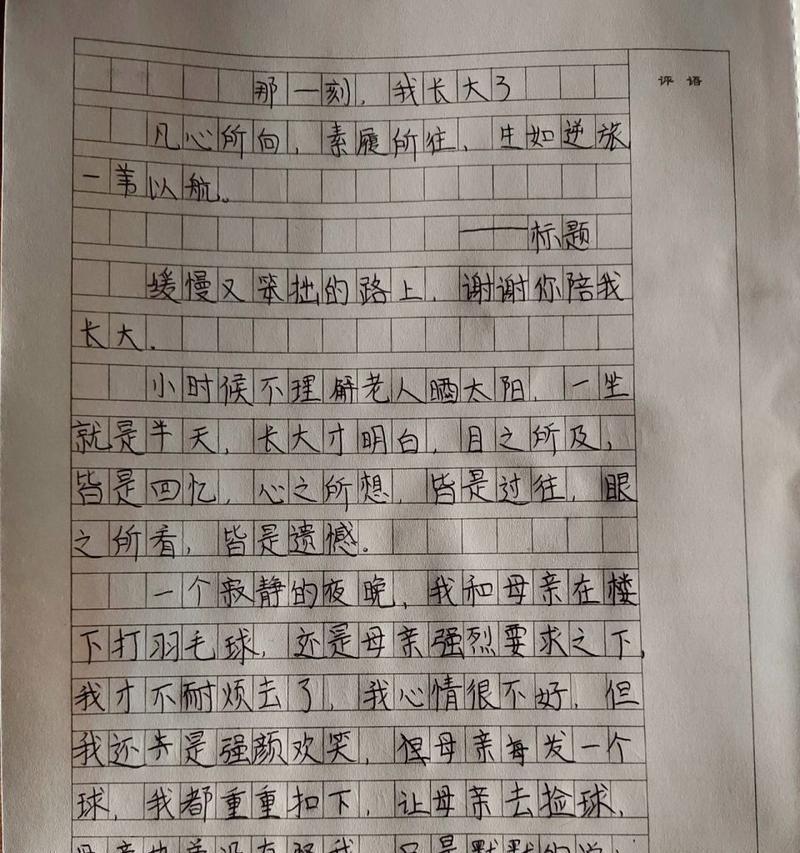 评语
那一刻，我长大了
凡心所向，素履所往，生如逆旅
一苇以航。
——标题
缓慢又笨拙的路上，谢谢你陪我
长大．
小时候不理解老人晒太阳，一坐
就是半天，长大才明白，目之所及，
皆是回忆，心之所想，皆是过往，眼
之所看，皆是遗憾。
一个寂静的夜晚，我和母亲在楼
下打羽毛球，还是母亲强烈要求之下，
我才不耐烦去了，我心情很不好，但
我还是强颜欢笑，但母亲每发一个
球，我都重重扣下，让母亲去捡球，
母亲也并没有怪我，只是默默的说：